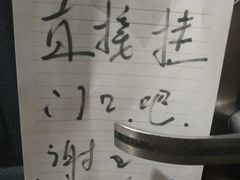 直接挂
门口吧.
谢